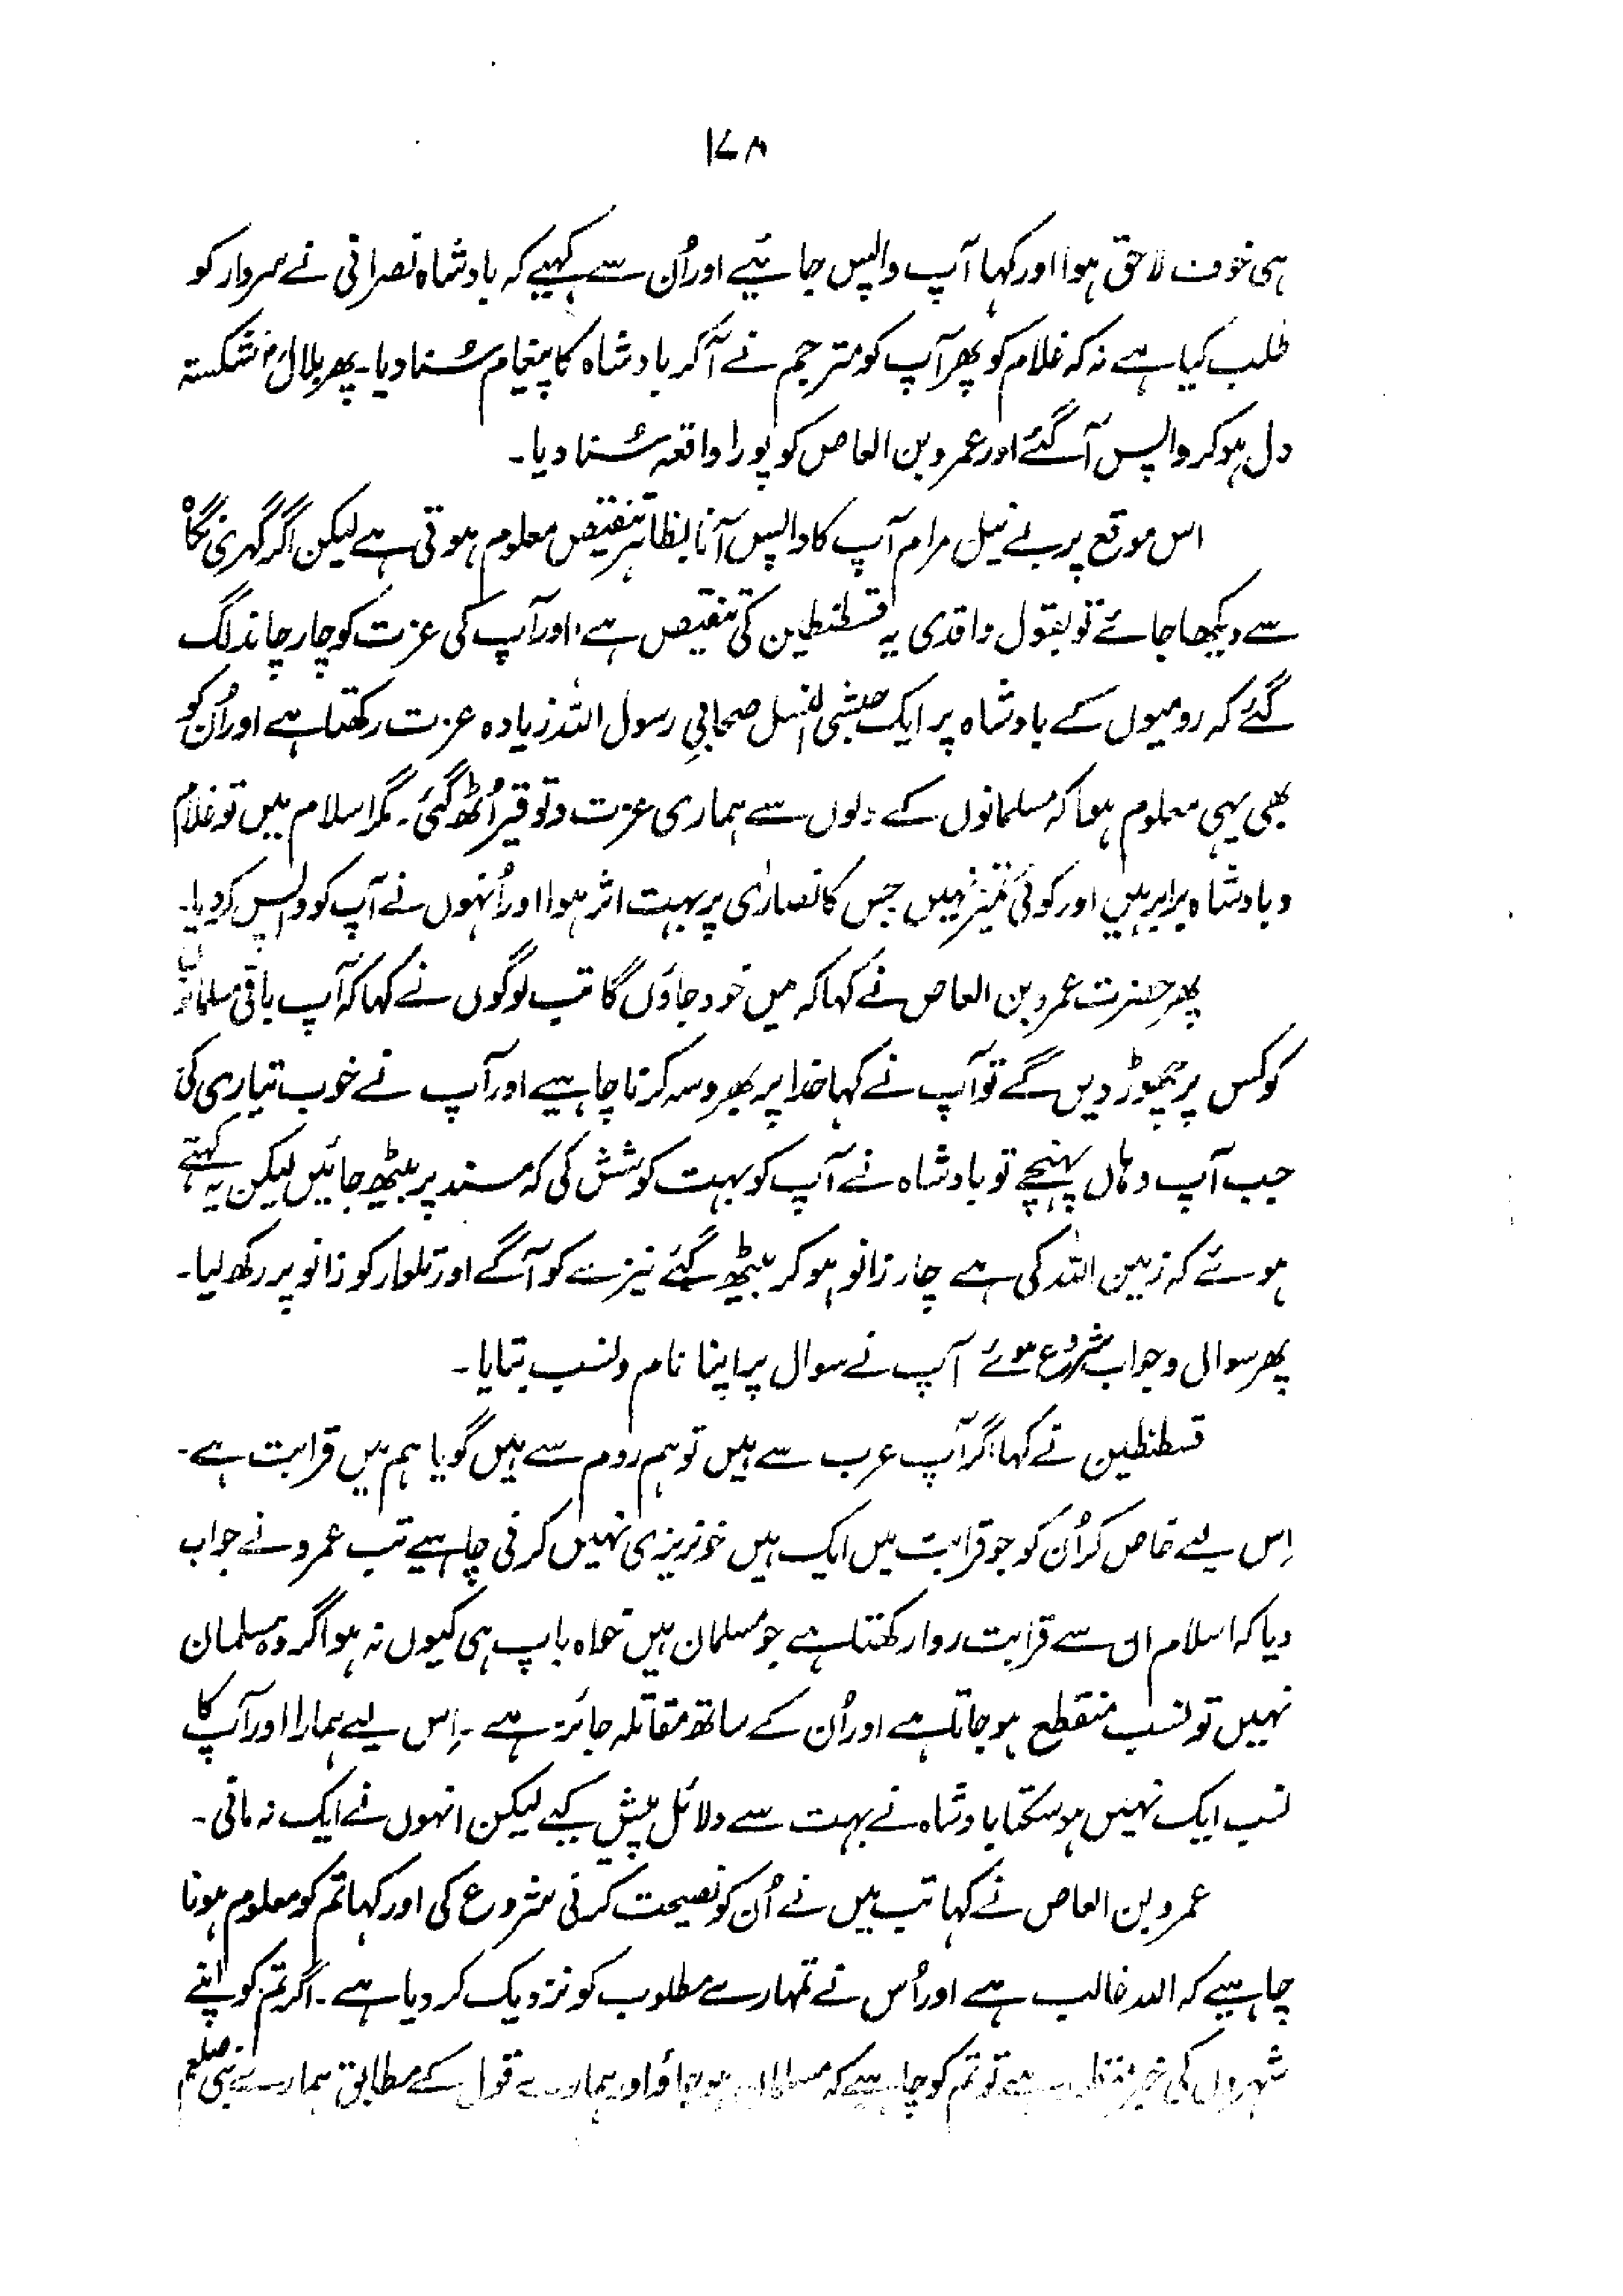 ۱۷۸
ہی خوف لاحق ہوا اور کہا آپ واپس جائیے اور اُن سے کہیے کہ بادشاہ نصرانی نے سردار کو
طلب کیا ہے نہ کہ غلام کو پھر آپ کو مترجم نے آ کر بادشاہ کا پیغام سُنا دیا۔ پھر بلالؓ شکستہ
دل ہو کر واپس آ گئے اور عمرو بن العاص کو پورا واقعہ سُنا دیا۔
اس موقع پر بے نیل مرام آپ کا واپس آنا بظاہر تنقیص معلوم ہوتی ہے لیکن اگر گہری نگاہ
سے دیکھا جائے تو بقول واقدی یہ قسطنطین کی تنقیص ہے، اور آپ کی عزت کو چار چاند لگ
گئے کہ رومیوں کے بادشاہ پر ایک حبشی النسل صحابیِ رسول اللہ زیادہ عزت رکھتا ہے اور اُن کو
بھی یہی معلوم ہوا کہ مسلمانوں کے دلوں سے ہماری عزت و توقیر اُٹھ گئی۔ مگر اسلام میں تو غلام
و بادشاہ برابر ہیں اور کوئی تمیز نہیں جس کا نصاریٰ پر بہت اثر ہوا اور اُنہوں نے آپ کو واپس کر دیا۔
پھر حضرت عمرو بن العاص نے کہا کہ میں خود جاؤں گا تب لوگوں نے کہا کہ آپ باقی مسلمانوں
کو کس پر چھوڑ دیں گے تو آپ نے کہا خدا پر بھروسہ کرنا چاہیے اور آپ نے خوب تیاری کی
جب آپ وہاں پہنچے تو بادشاہ نے آپ کو بہت کوشش کی کہ مسند پر بیٹھ جائیں لیکن یہ کہتے
ہوئے کہ زمین اللہ کی ہے چار زانو ہو کر بیٹھ گئے نیزے کو آگے اور تلوار کو زانو پر رکھ لیا۔
پھر سوال و جواب شروع ہوئے آپ نے سوال پر اپنا نام و نسب بتایا۔
قسطنطین نے کہا اگر آپ عرب سے ہیں تو ہم روم سے ہیں گویا ہم میں قرابت ہے۔
اِس لیے خاص کر اُن کو جو قرابت میں ایک ہیں خونریزی نہیں کرنی چاہیے تب عمرو نے جواب
دیا کہ اسلام ان سے قرابت روا رکھتا ہے جو مسلمان ہیں خواہ باپ ہی کیوں نہ ہو اگر وہ مسلمان
نہیں تو نسب منقطع ہو جاتا ہے اور اُن کے ساتھ مقاتلہ جائز ہے۔ اِس لیے ہمارا اور آپ کا
نسب ایک نہیں ہو سکتا بادشاہ نے بہت سے دلائل پیش کیے لیکن انہوں نے ایک نہ مانی۔
عمرو بن العاص نے کہا تب میں نے اُن کو نصیحت کرنی شروع کی اور کہا تم کو معلوم ہونا
چاہیے کہ اللہ غالب ہے اور اُس نے تمہارے مطلوب کو نزدیک کر دیا ہے۔ اگر تم کو اپنے
شہروں کی خیر منظور ہے تو تم کو چاہیے کہ مسلمان ہو جاؤ اور ہمارے قول کے مطابق ہمارے نبی صلعم